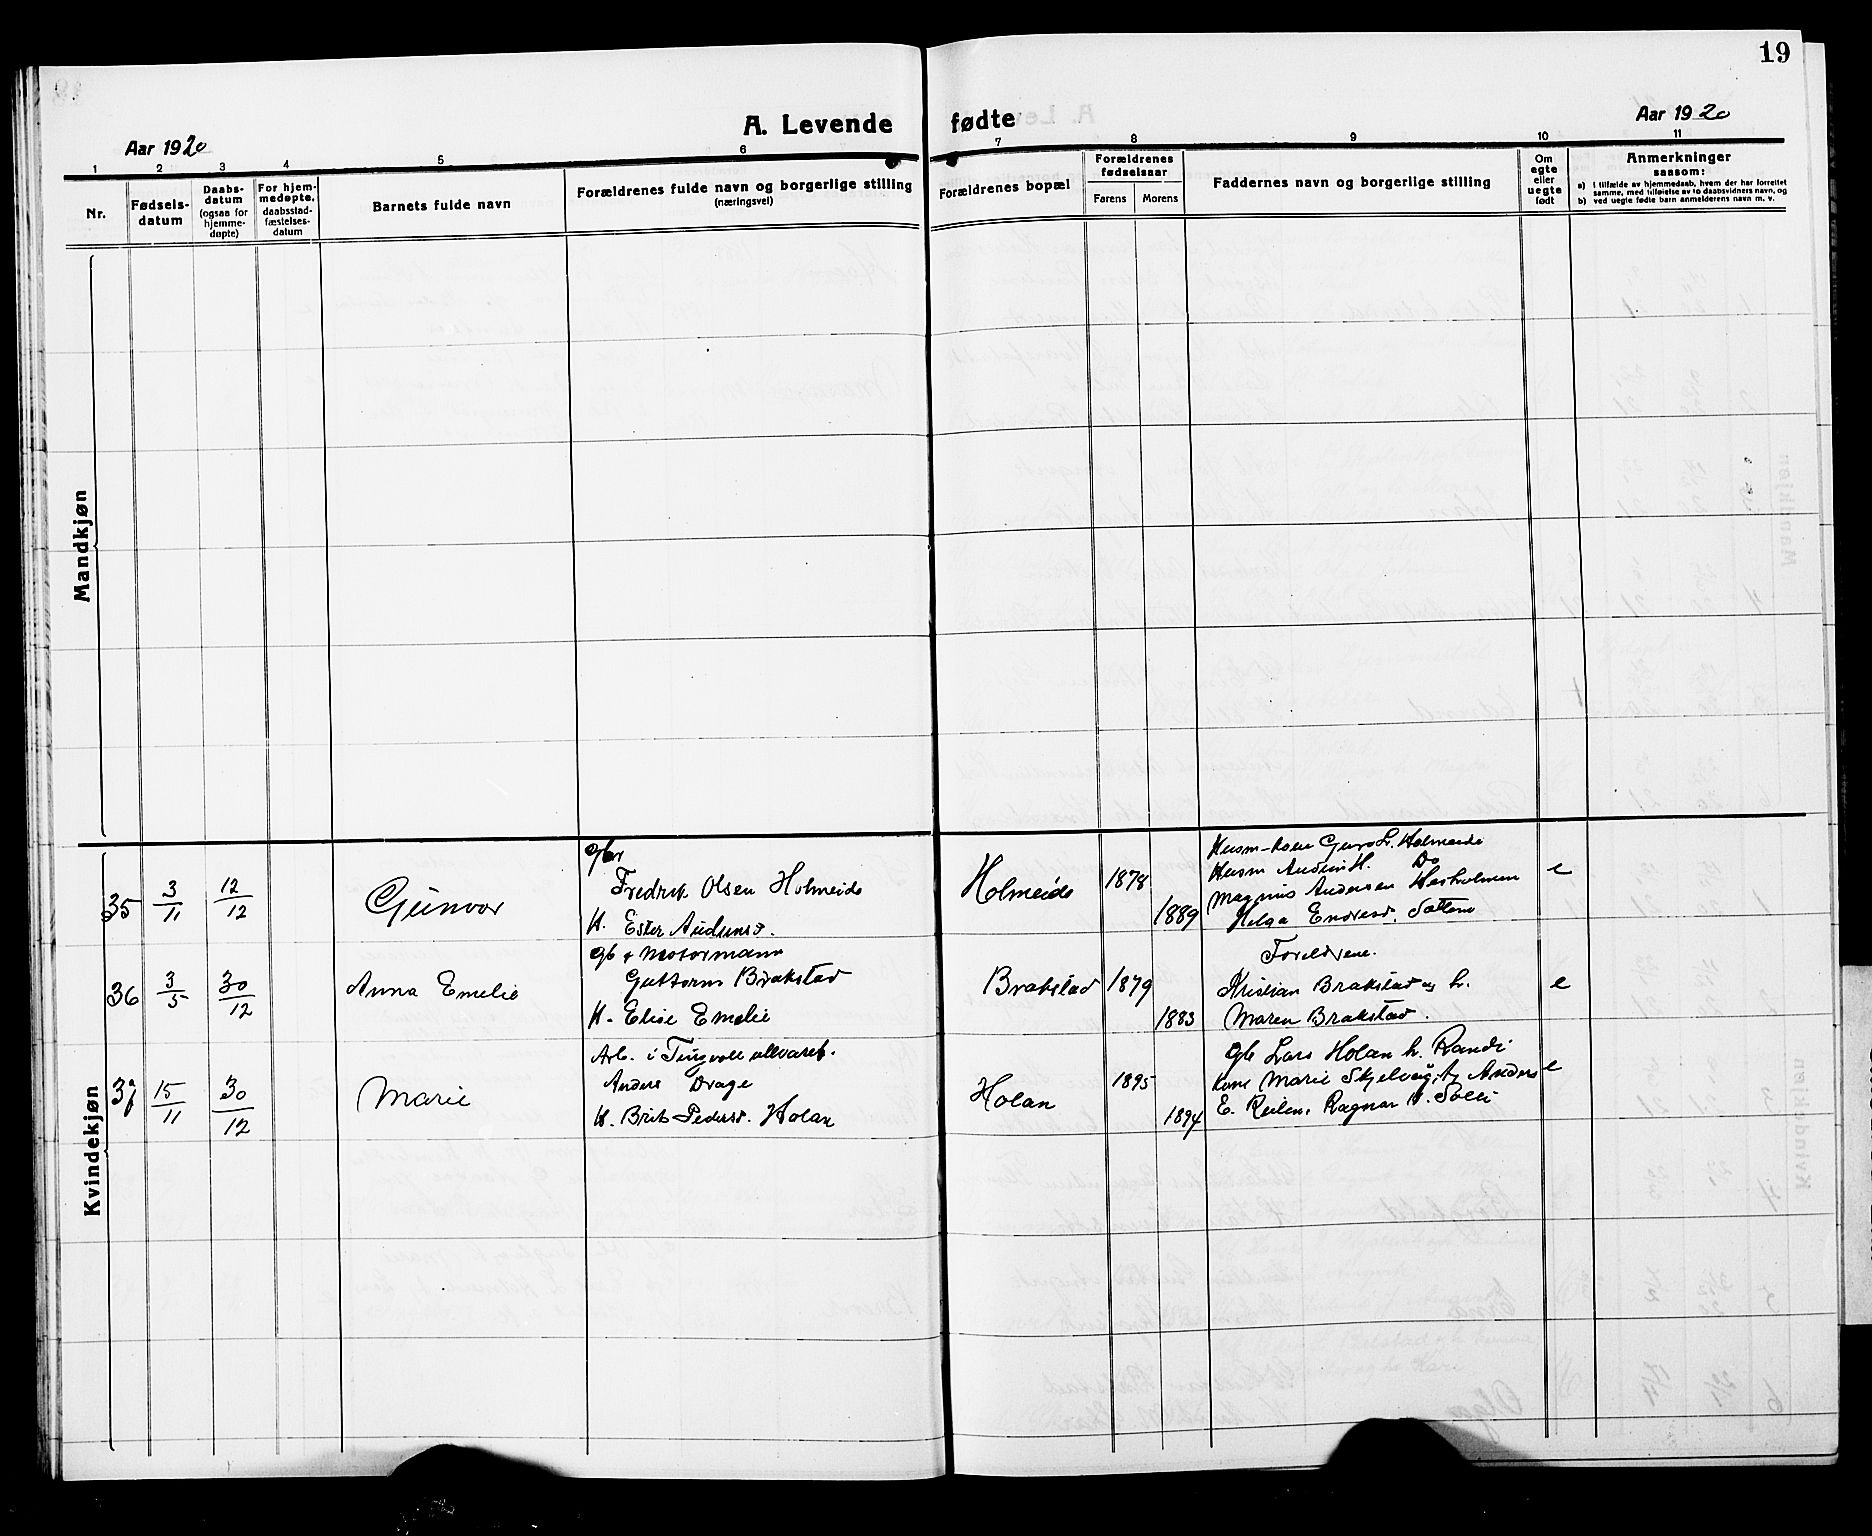 19
A. Levende fødte
Aar 1920
Aar 1920
1 2 3 4 5 6 7 8 9 10 11
Nr.
Fødsels-
datum
Daabs-
datum
(ogsaa for
hjemme-
døpte)
For hjem-
medøpte,
daabsstad-
fæstelses-
datum
Barnets fulde navn
Forældrenes fulde navn og borgerlige stilling
(næringsvei)
Forældrenes bopæl
Forældrenes
fødselsaar
Farens Morens
Faddernes navn og borgerlige stilling
Om
egte
eller
uegte
født
Anmerkninger
saasom:
a) i tilfælde av hjemmedaab, hvem der har forrettet
samme, med tilføielse av to daabsvidners navn, og
b) ved uegte fødte barn anmelderens navn m. v.
Mandkjøn
Kvindekjøn
35 3/11 12/12 Gunvor
gbr
Fredrik Olsen Holmeide
H. Ester Audunsd.
Holmeide 1878 1889
Husm-kone Guro L. Holmeide
Husm Audun H. Do
Magnus Andersen
Helga Endresd.
e
36 3/5 30/12 Anna Emelie
gb & Motormann
Guttorm Brakstad
H. Elise Emelie
Brakstad 1879 1883
Foreldrene.
Kristian Brakstad og h.
Maren Brakstad.
e
37 15/11 30/12 Marie
Arb. i Tingvoll ullvaref.
Anders Drage
H. Brit Pedersd. Holan
Holan 1895 1894
gb Lars Holan h. Randi
kone Marie Anders
E. Ragnar Solli
e